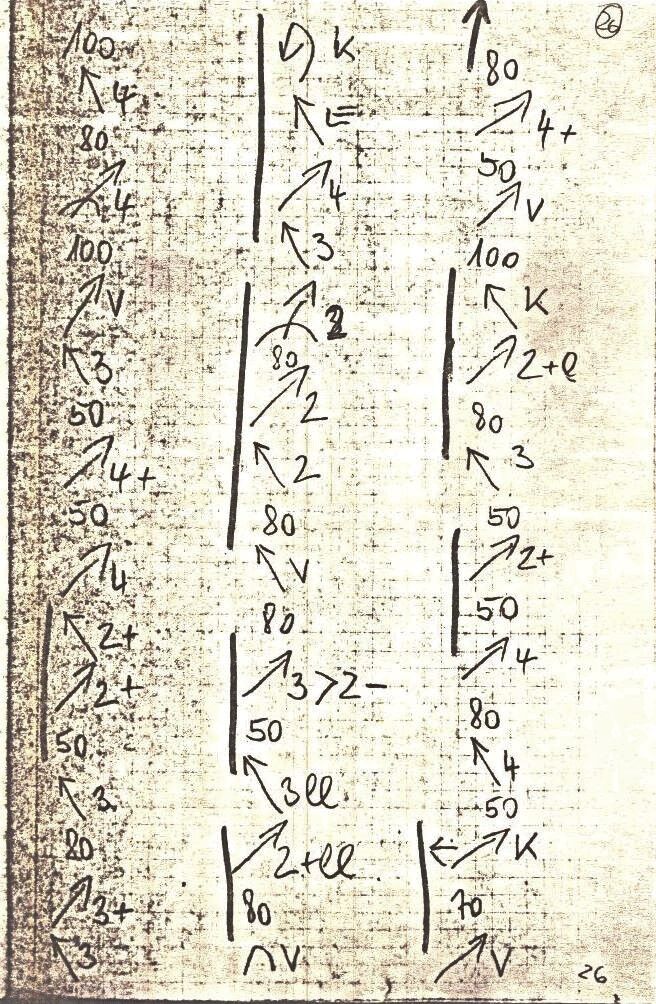 26
100
↖ 4
80
↗ 4
100
↗ V
↖ 3
50
↗ 4+
50
↗ 4
↖ 2+
↗ 2+
50
↖ 3
80
↗ 3+
↖ 3
K
↖
↗ 4
↖ 3
↗ 2
80
↗ 2
↖ 2
80
↖ V
80
↗ 3>2-
50
↖ 3ll
↗ 2+ll
80
∩ V
↑
80
↗ 4+
50
↗ V
100
↖ K
↗ 2+l
80
↖ 3
50
↗ 2+
50
↗ 4
80
↖ 4
50
← ↗ K
70
↗ V
26